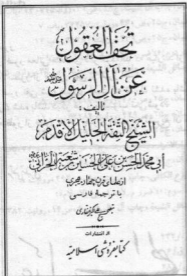 تحف العقول
عن آل الرسول
تألیف:
الشیخ الثقة الجلیل الأقدم
أبی محمد الحسن بن علی بن الحسین بن شعبة الحرانی
از علمای قرن چهارم هجری
با ترجمهٔ فارسی
از انتشارات
کتابفروشی اسلامیه